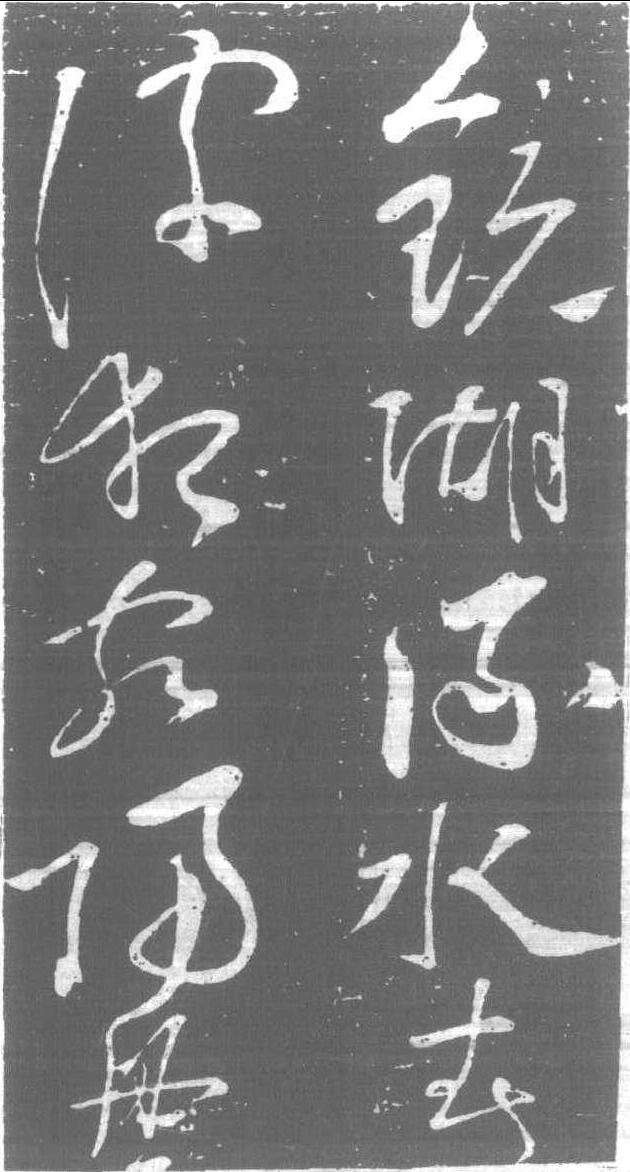 鏡湖流水春
波狂客歸舟